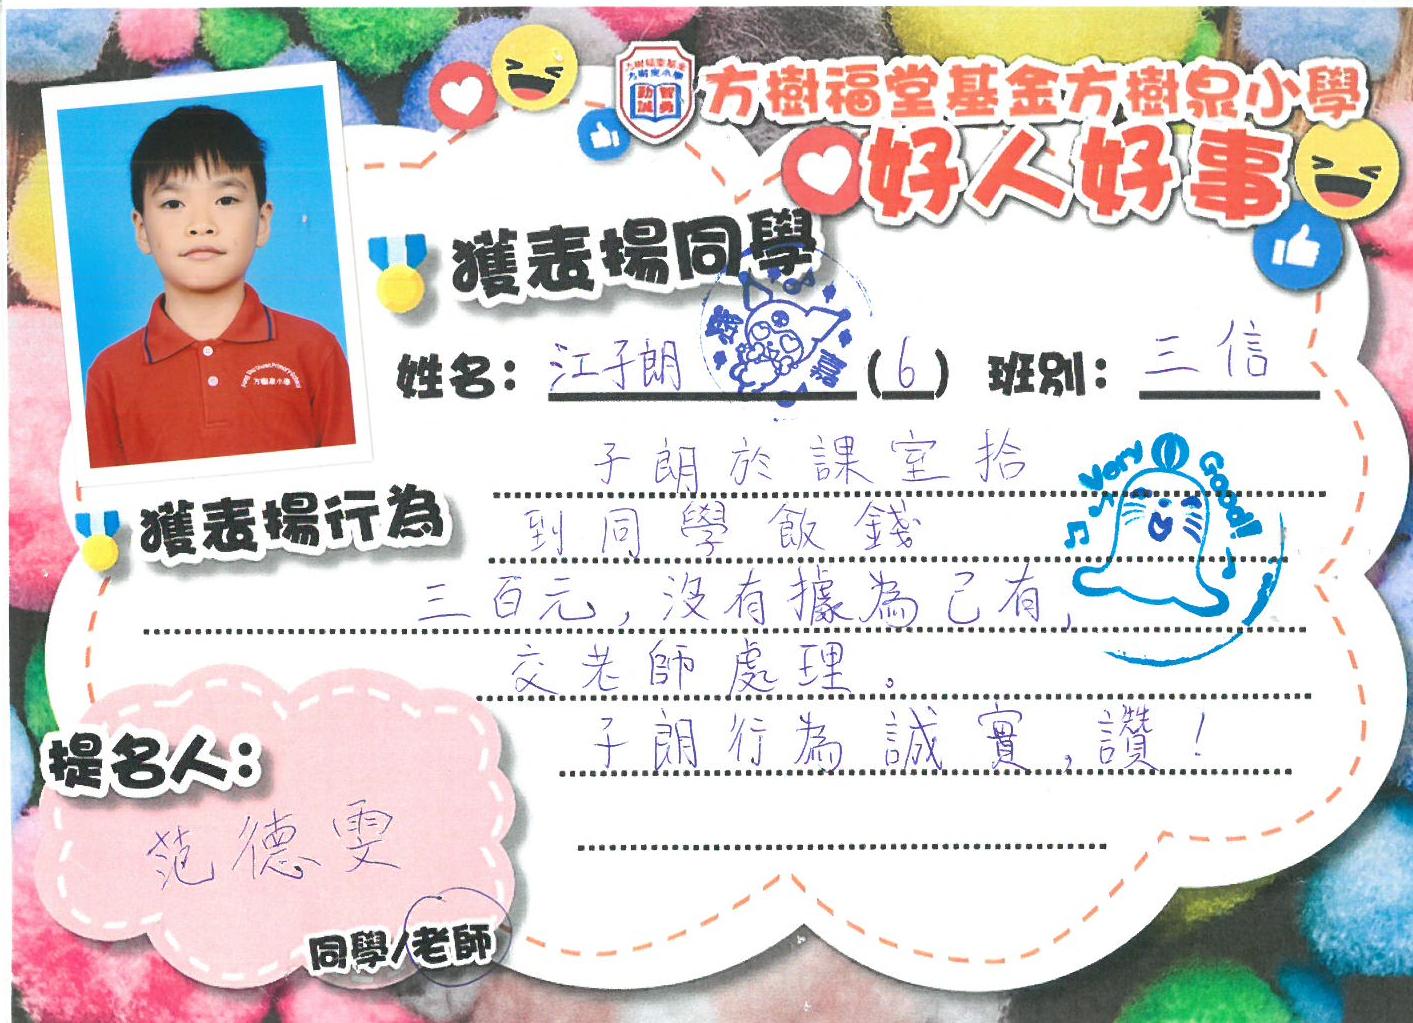 方樹福堂基金方樹泉小學
好人好事
獲表揚同學
姓名：江子朗 (6) 班別：三信
嘉
方樹泉小學
獲表揚行為
子朗於課室拾
到同學飯錢
三百元，沒有據為己有，
交老師處理。
子朗行為誠實，讚！
Very Good!!
提名人：
范德雯
同學/老師